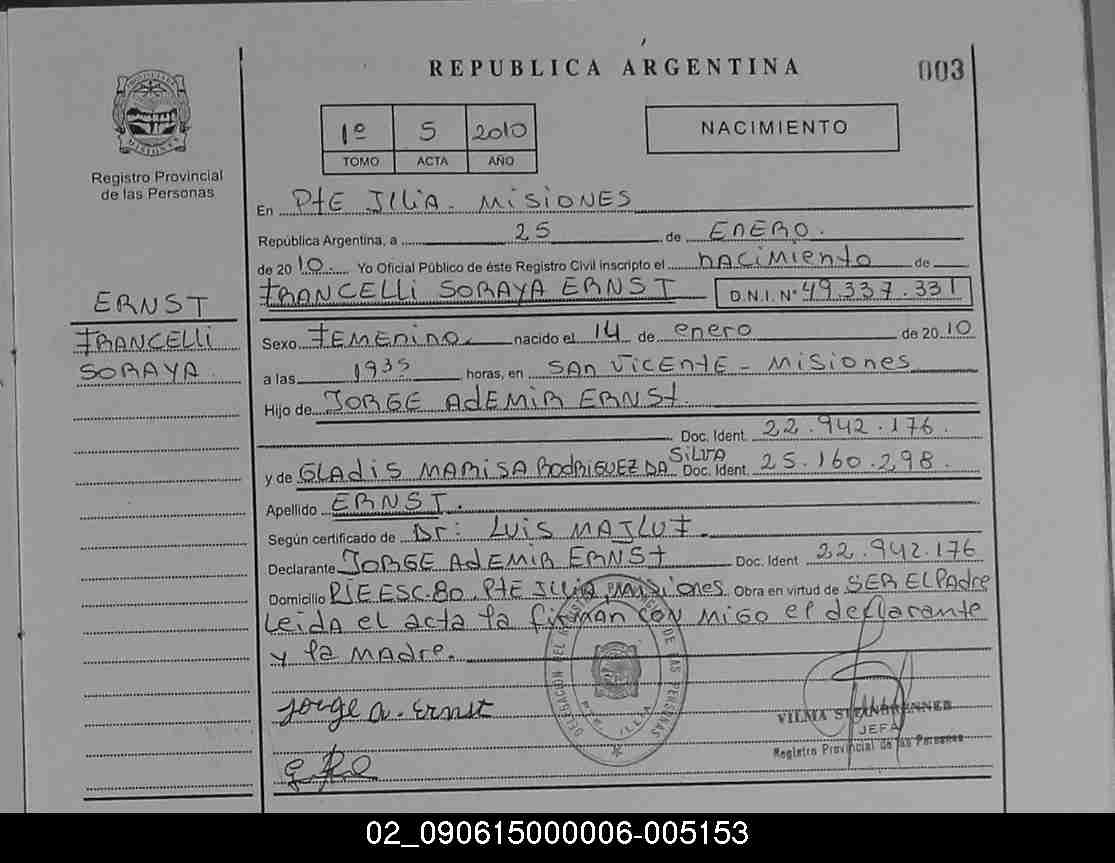 REPUBLICA ARGENTINA
003
PROVINCIA
MISIONES
Registro Provincial
de las Personas
1º 5 2010
TOMO ACTA AÑO
NACIMIENTO
En PtE ILLiA - MiSiONES
República Argentina, a 25 de ENERO.
de 2010. Yo Oficial Público de éste Registro Civil inscripto el nACiMiento de
FRANCELLi SORAYA ERNST D.N.I. Nº 49.337.331
ERNST
FRANCELLi
SORAYA
Sexo FEMEnino. nacido el 14 de enero de 2010
a las 1935 horas, en SAn ViCENtE - MiSiones
Hijo de JORGE AdEMiR ERNSt.
Doc. Ident. 22.942.176.
y de GLAdiS MARiSA RodRiGUEZ DA SiLVA Doc. Ident. 25.160.298.
Apellido ERNST.
Según certificado de Dr: LUiS MAJLUF.
Declarante JORGE AdEMiR ERNSt Doc. Ident 22.942.176
Domicilio PJE ESC. 80. PtE ILLiA, MiSiones. Obra en virtud de SER EL PAdre
Leida el acta la firman con migo el declarante
y la MAdre.
Jorge a. Ernst
DELEGACION DEL REGISTRO DE LAS PERSONAS
PTE. ILLIA
VILMA STEINBRENNER
JEFA
Registro Provincial de las Personas
02_090615000006-005153